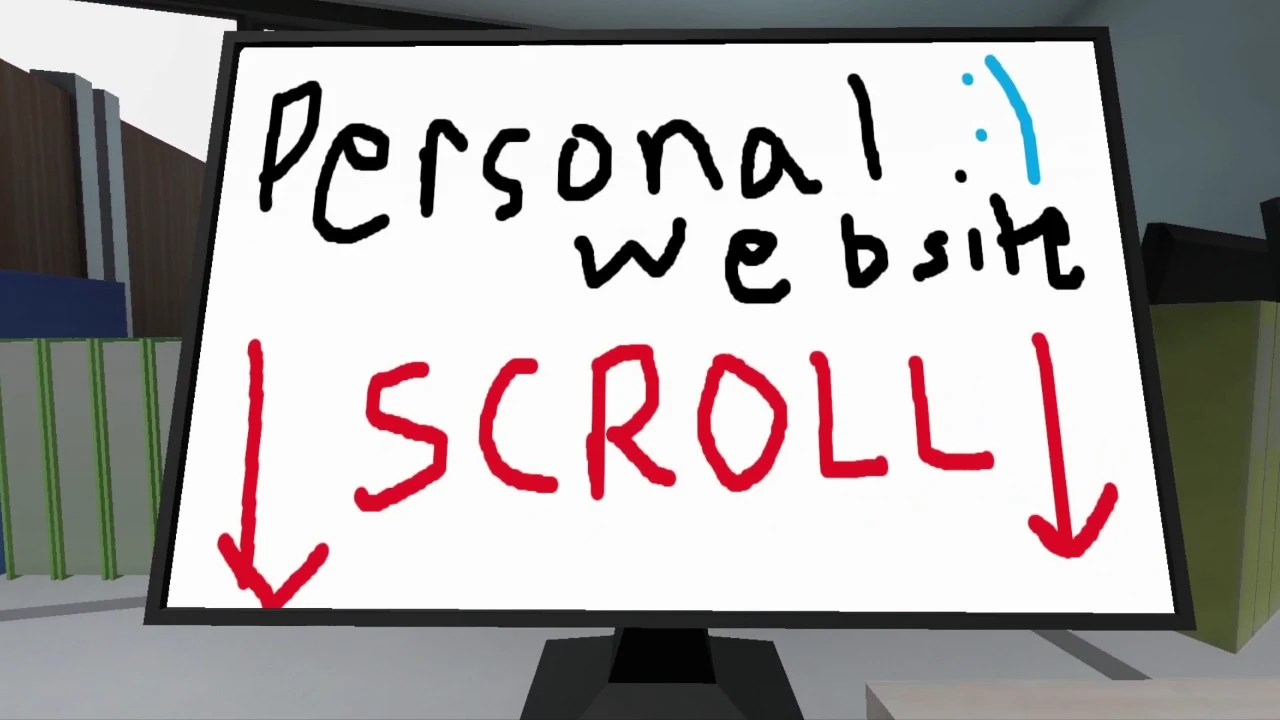 Personal :)
website
SCROLL